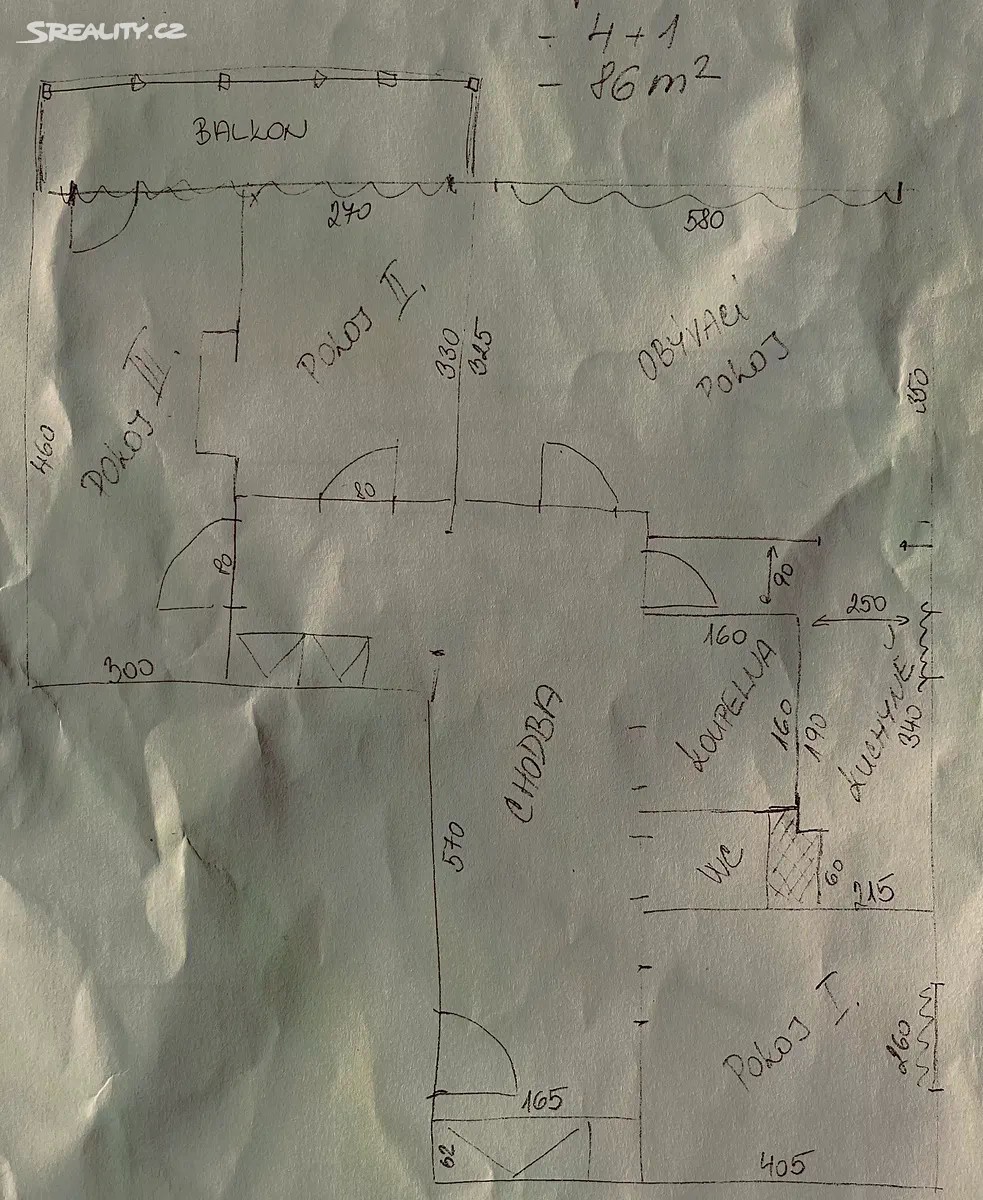 SREALITY.CZ
- 4+1
- 86 m²
BALKON
270
580
POKOJ II.
OBÝVACÍ
POKOJ
POKOJ III.
330
325
350
460
80
80
90
250
160
300
KOUPELNA
160
190
KUCHYNĚ
340
CHODBA
570
WC
60
215
POKOJ I.
260
165
62
405